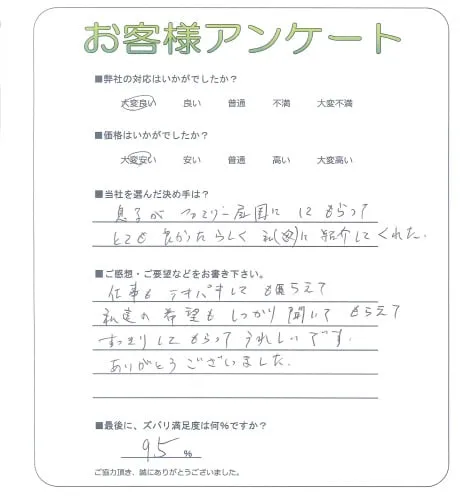 お客様アンケート
■弊社の対応はいかがでしたか？
大変良い 良い 普通 不満 大変不満
■価格はいかがでしたか？
大変安い 安い 普通 高い 大変高い
■当社を選んだ決め手は？
息子が ファミリー庭園に して もらって
とても 良かったらしく 私(父)に 紹介して くれた.
■ご感想・ご要望などをお書き下さい。
仕事も テキパキして もらえて
私達の 希望も しっかり 聞いて もらえて
すっきりして もらって うれしいです.
ありがとう ございました.
■最後に、ズバリ満足度は何％ですか？
95 ％
ご協力頂き、誠にありがとうございました。